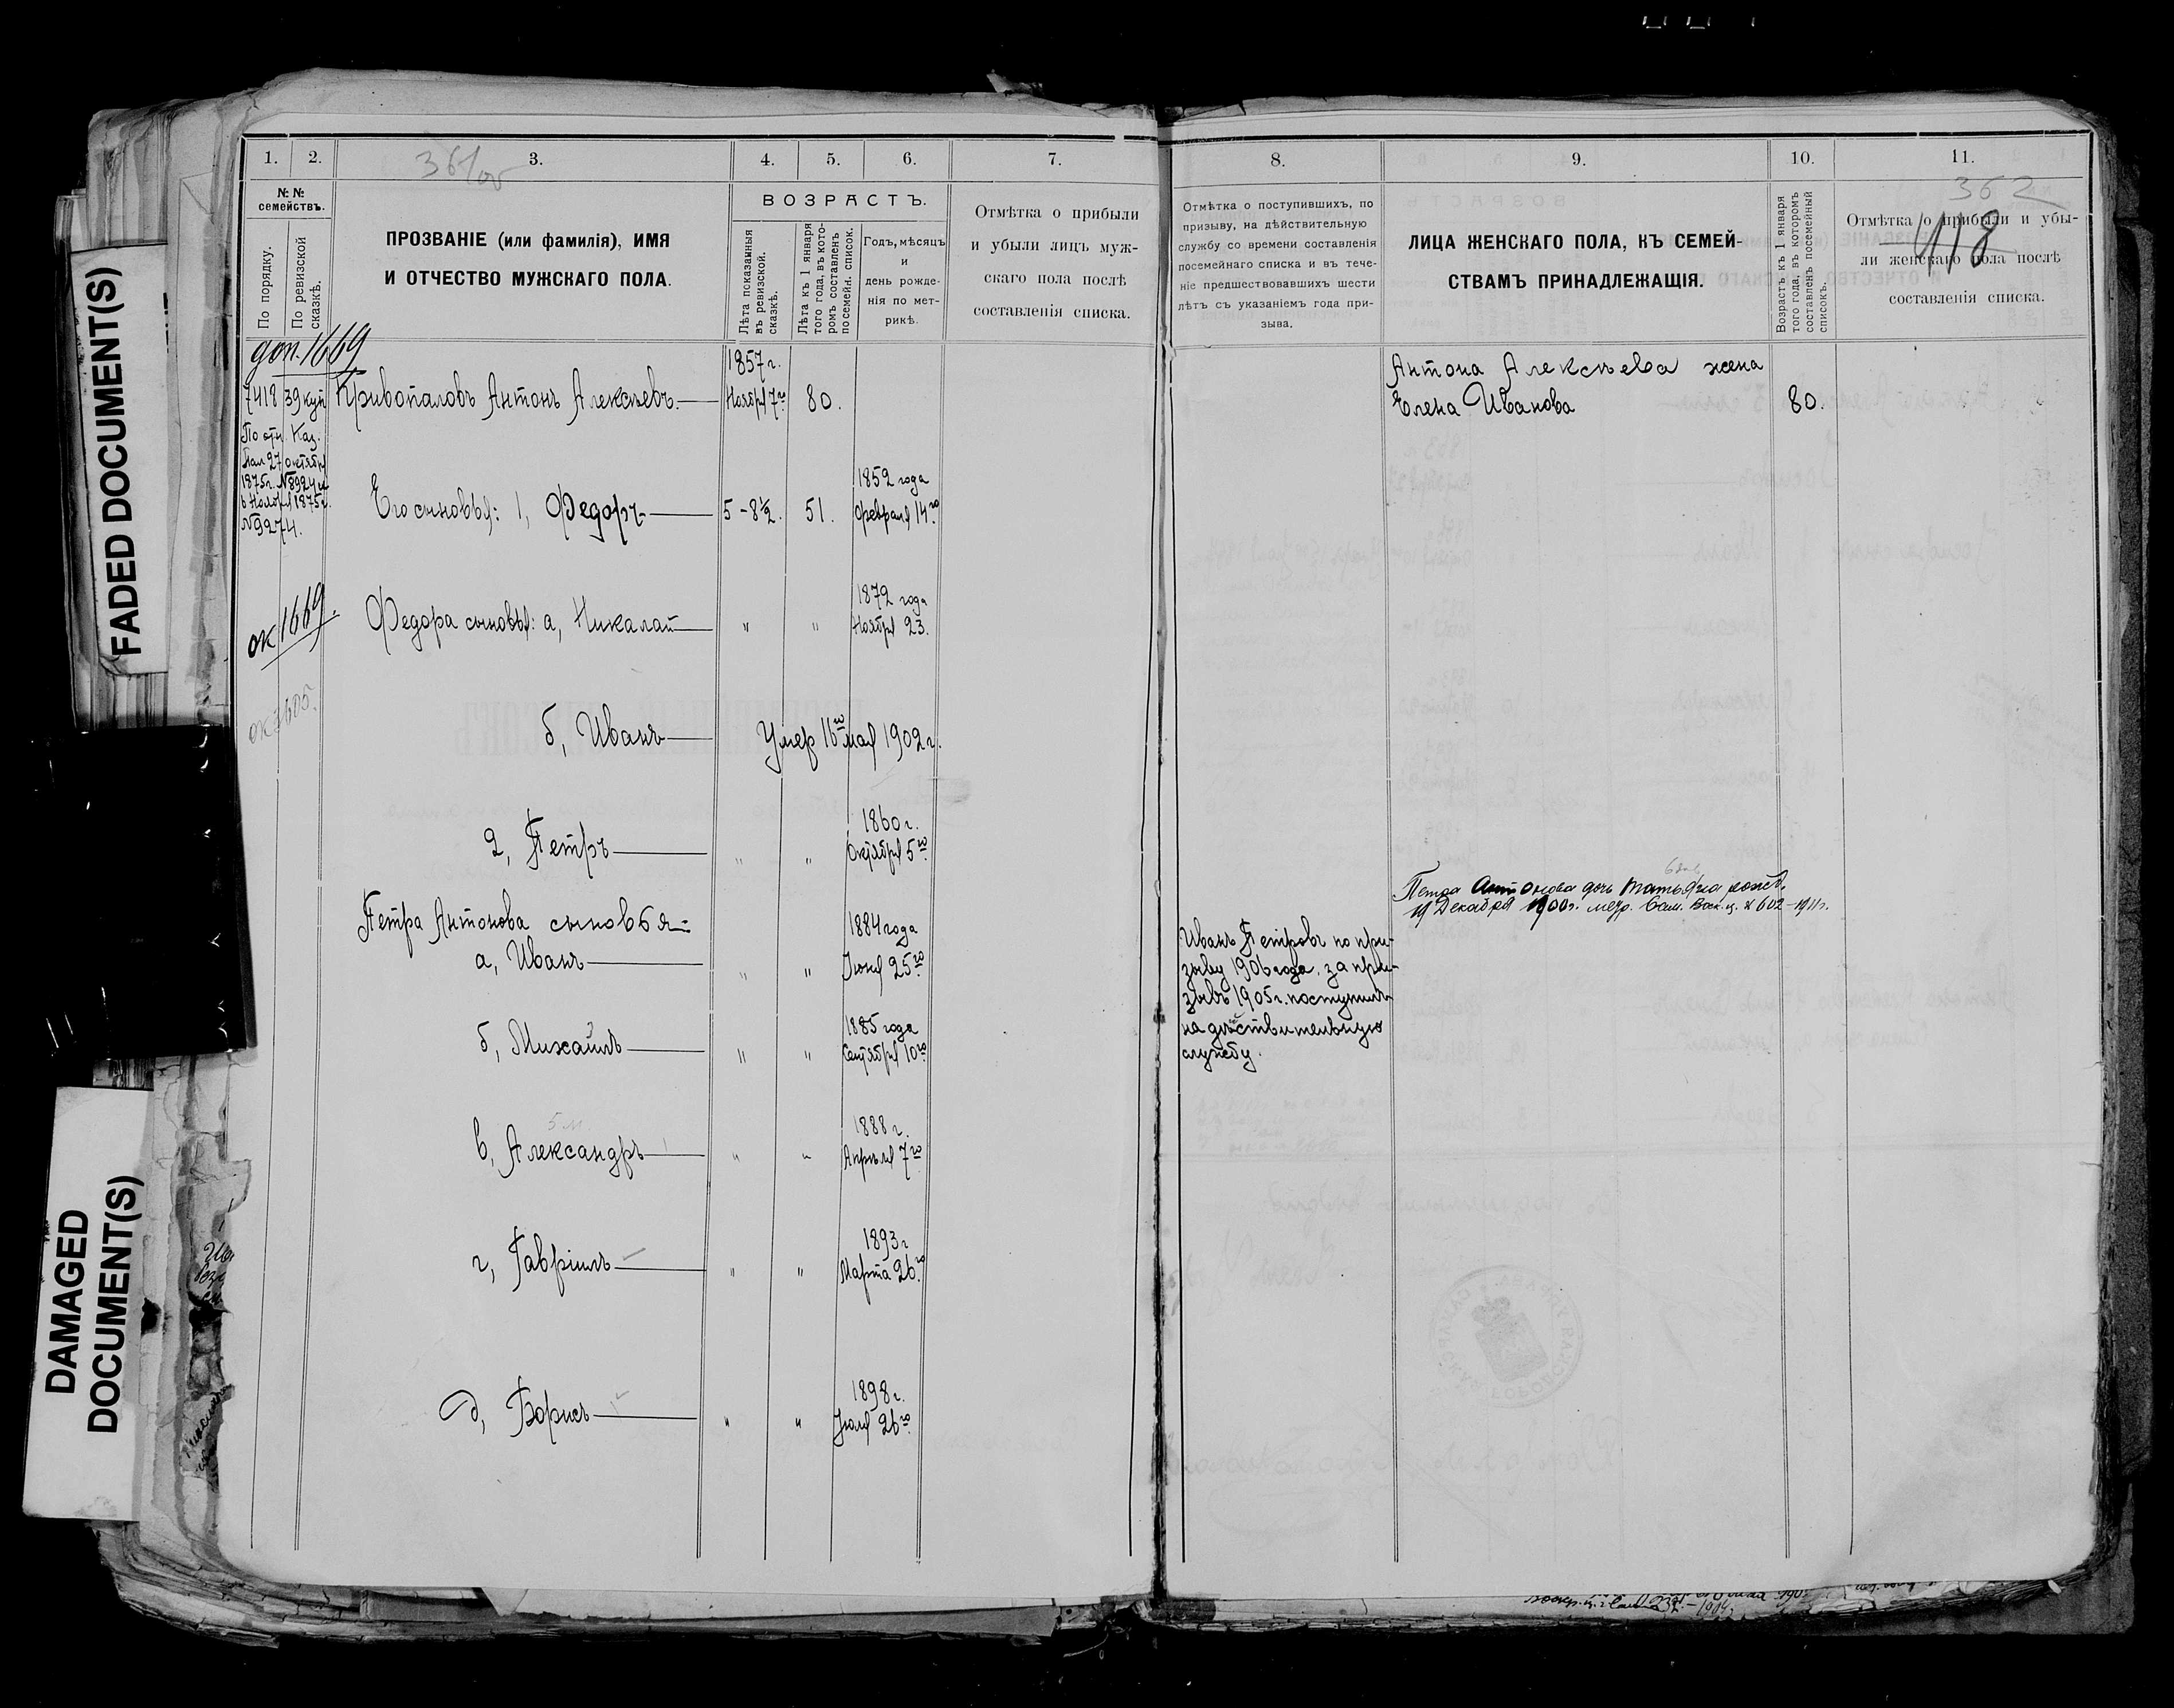 FADED DOCUMENT(S)
DAMAGED
DOCUMENT(S)
1. 2. 3. 4. 5. 6. 7.
№ №
семействъ.
По порядку.
По ревизской
сказкѣ.
ПРОЗВАНІЕ (или фамилія), ИМЯ
И ОТЧЕСТВО МУЖСКАГО ПОЛА.
ВОЗРАСТЪ.
Лѣта показанныя
въ ревизской.
сказкѣ.
Лѣта къ 1 января
того года, въ кото-
ромъ составленъ
посемейн. список.
Годъ, мѣсяцъ
и
день рожде-
нія по мет-
рикѣ.
Отмѣтка о прибыли
и убыли лицъ муж-
скаго пола послѣ
составленія списка.
доп. 1669
1857 г.
7418 39 куп Кривопаловъ Антонъ Алексѣевъ. Ноября 7го 80.
По отн. Каз.
Пал 27 октября
1875 г. №8924 и
6 Ноября 1875 г.
№9274.
1852 года
Его сыновья: 1, Федоръ 5-8½. 51. Февраля 14го
ок 1669.
1872 года
Федора сыновья: а, Николай " " Ноября 23.
б, Иванъ Умер 16го мая 1902 г.
1860 г.
2, Петръ " " Октября 5го
Петра Антонова сыновья:
1884 года
а, Иванъ " " Іюня 25го
1885 года
б, Михаилъ " " Сентября 10го
5 м
1888 г.
в, Александръ " " Апрѣля 7го
1893 г
г, Гавріилъ " " Марта 26го
1898 г.
д, Борисъ " " Іюля 26го
8. 9. 10. 11.
362
118
Отмѣтка о поступившихъ, по
призыву, на дѣйствительную
службу со времени составленія
посемейнаго списка и въ тече-
ніе предшествовавшихъ шести
лѣтъ съ указаніемъ года при-
зыва.
ЛИЦА ЖЕНСКАГО ПОЛА, КЪ СЕМЕЙ-
СТВАМЪ ПРИНАДЛЕЖАЩІЯ.
Возрастъ къ 1 января
того года, въ которомъ
составленъ посемейный
списокъ.
Отмѣтка о прибыли и убы-
ли женскаго пола послѣ
составленія списка.
Антона Алексѣева жена
Елена Иванова 80.
Петра Антонова дочь Татьяна рожд.
19 Декабря 1900 г. метр. Сам. Воск. ц. № 602-1911 г.
Иванъ Петровъ по при-
зыву 1906 года, за при-
зывъ 1905 г. поступилъ
на дѣйствительную
службу.